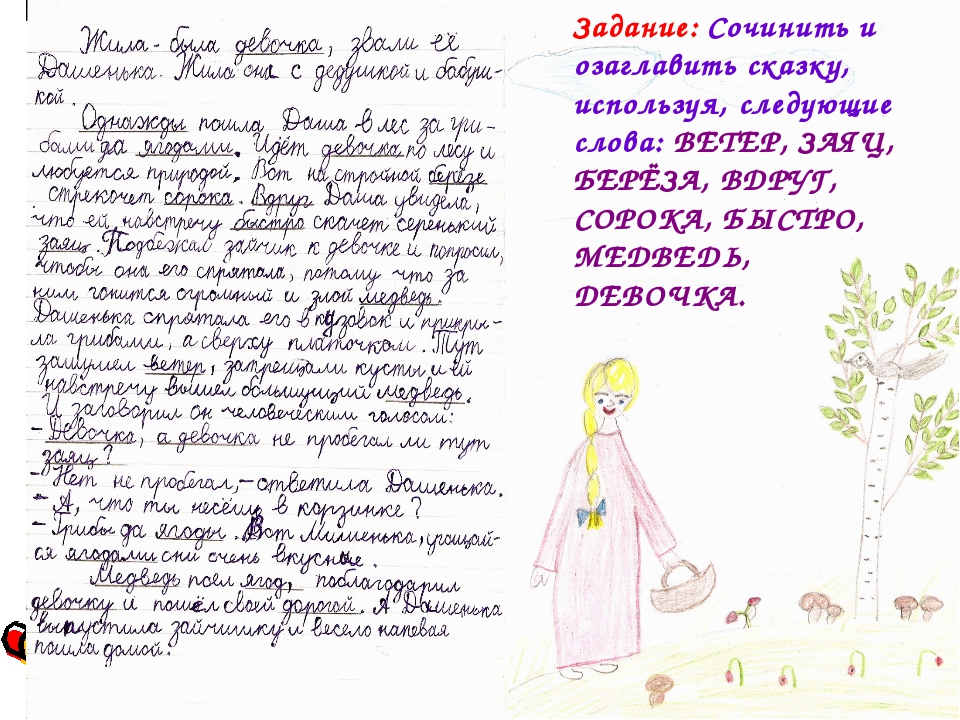 Жила-была девочка, звали её
Дашенька. Жила она с дедушкой и бабуш-
кой.
Однажды пошла Даша в лес за гри-
бами да ягодами. Идёт девочка по лесу и
любуется природой. Вот на стройной березе
стрекочет сорока. Вдруг Даша увидела,
что ей навстречу быстро скачет серенький
заяц. Подбежал зайчик к девочке и попросил,
чтобы она его спрятала, потому что за
ним гонится огромный и злой медведь.
Дашенька спрятала его в кузовок и прикры-
ла грибами, а сверху платочком. Тут
зашумел ветер, затрещали кусты и ей
навстречу вышел большущий медведь.
И заговорил он человеческим голосом:
- Девочка, а девочка не пробегал ли тут
заяц?
- Нет не пробегал, - ответила Дашенька.
- А, что ты несёшь в корзинке?
- Грибы да ягоды. Вот Мишенька, угощай-
ся ягодами они очень вкусные.
Медведь поел ягод, поблагодарил
девочку и пошёл своей дорогой. А Дашенька
выпустила зайчишку и весело напевая
пошла домой.
Задание: Сочинить и
озаглавить сказку,
используя, следующие
слова: ВЕТЕР, ЗАЯЦ,
БЕРЁЗА, ВДРУГ,
СОРОКА, БЫСТРО,
МЕДВЕДЬ,
ДЕВОЧКА.